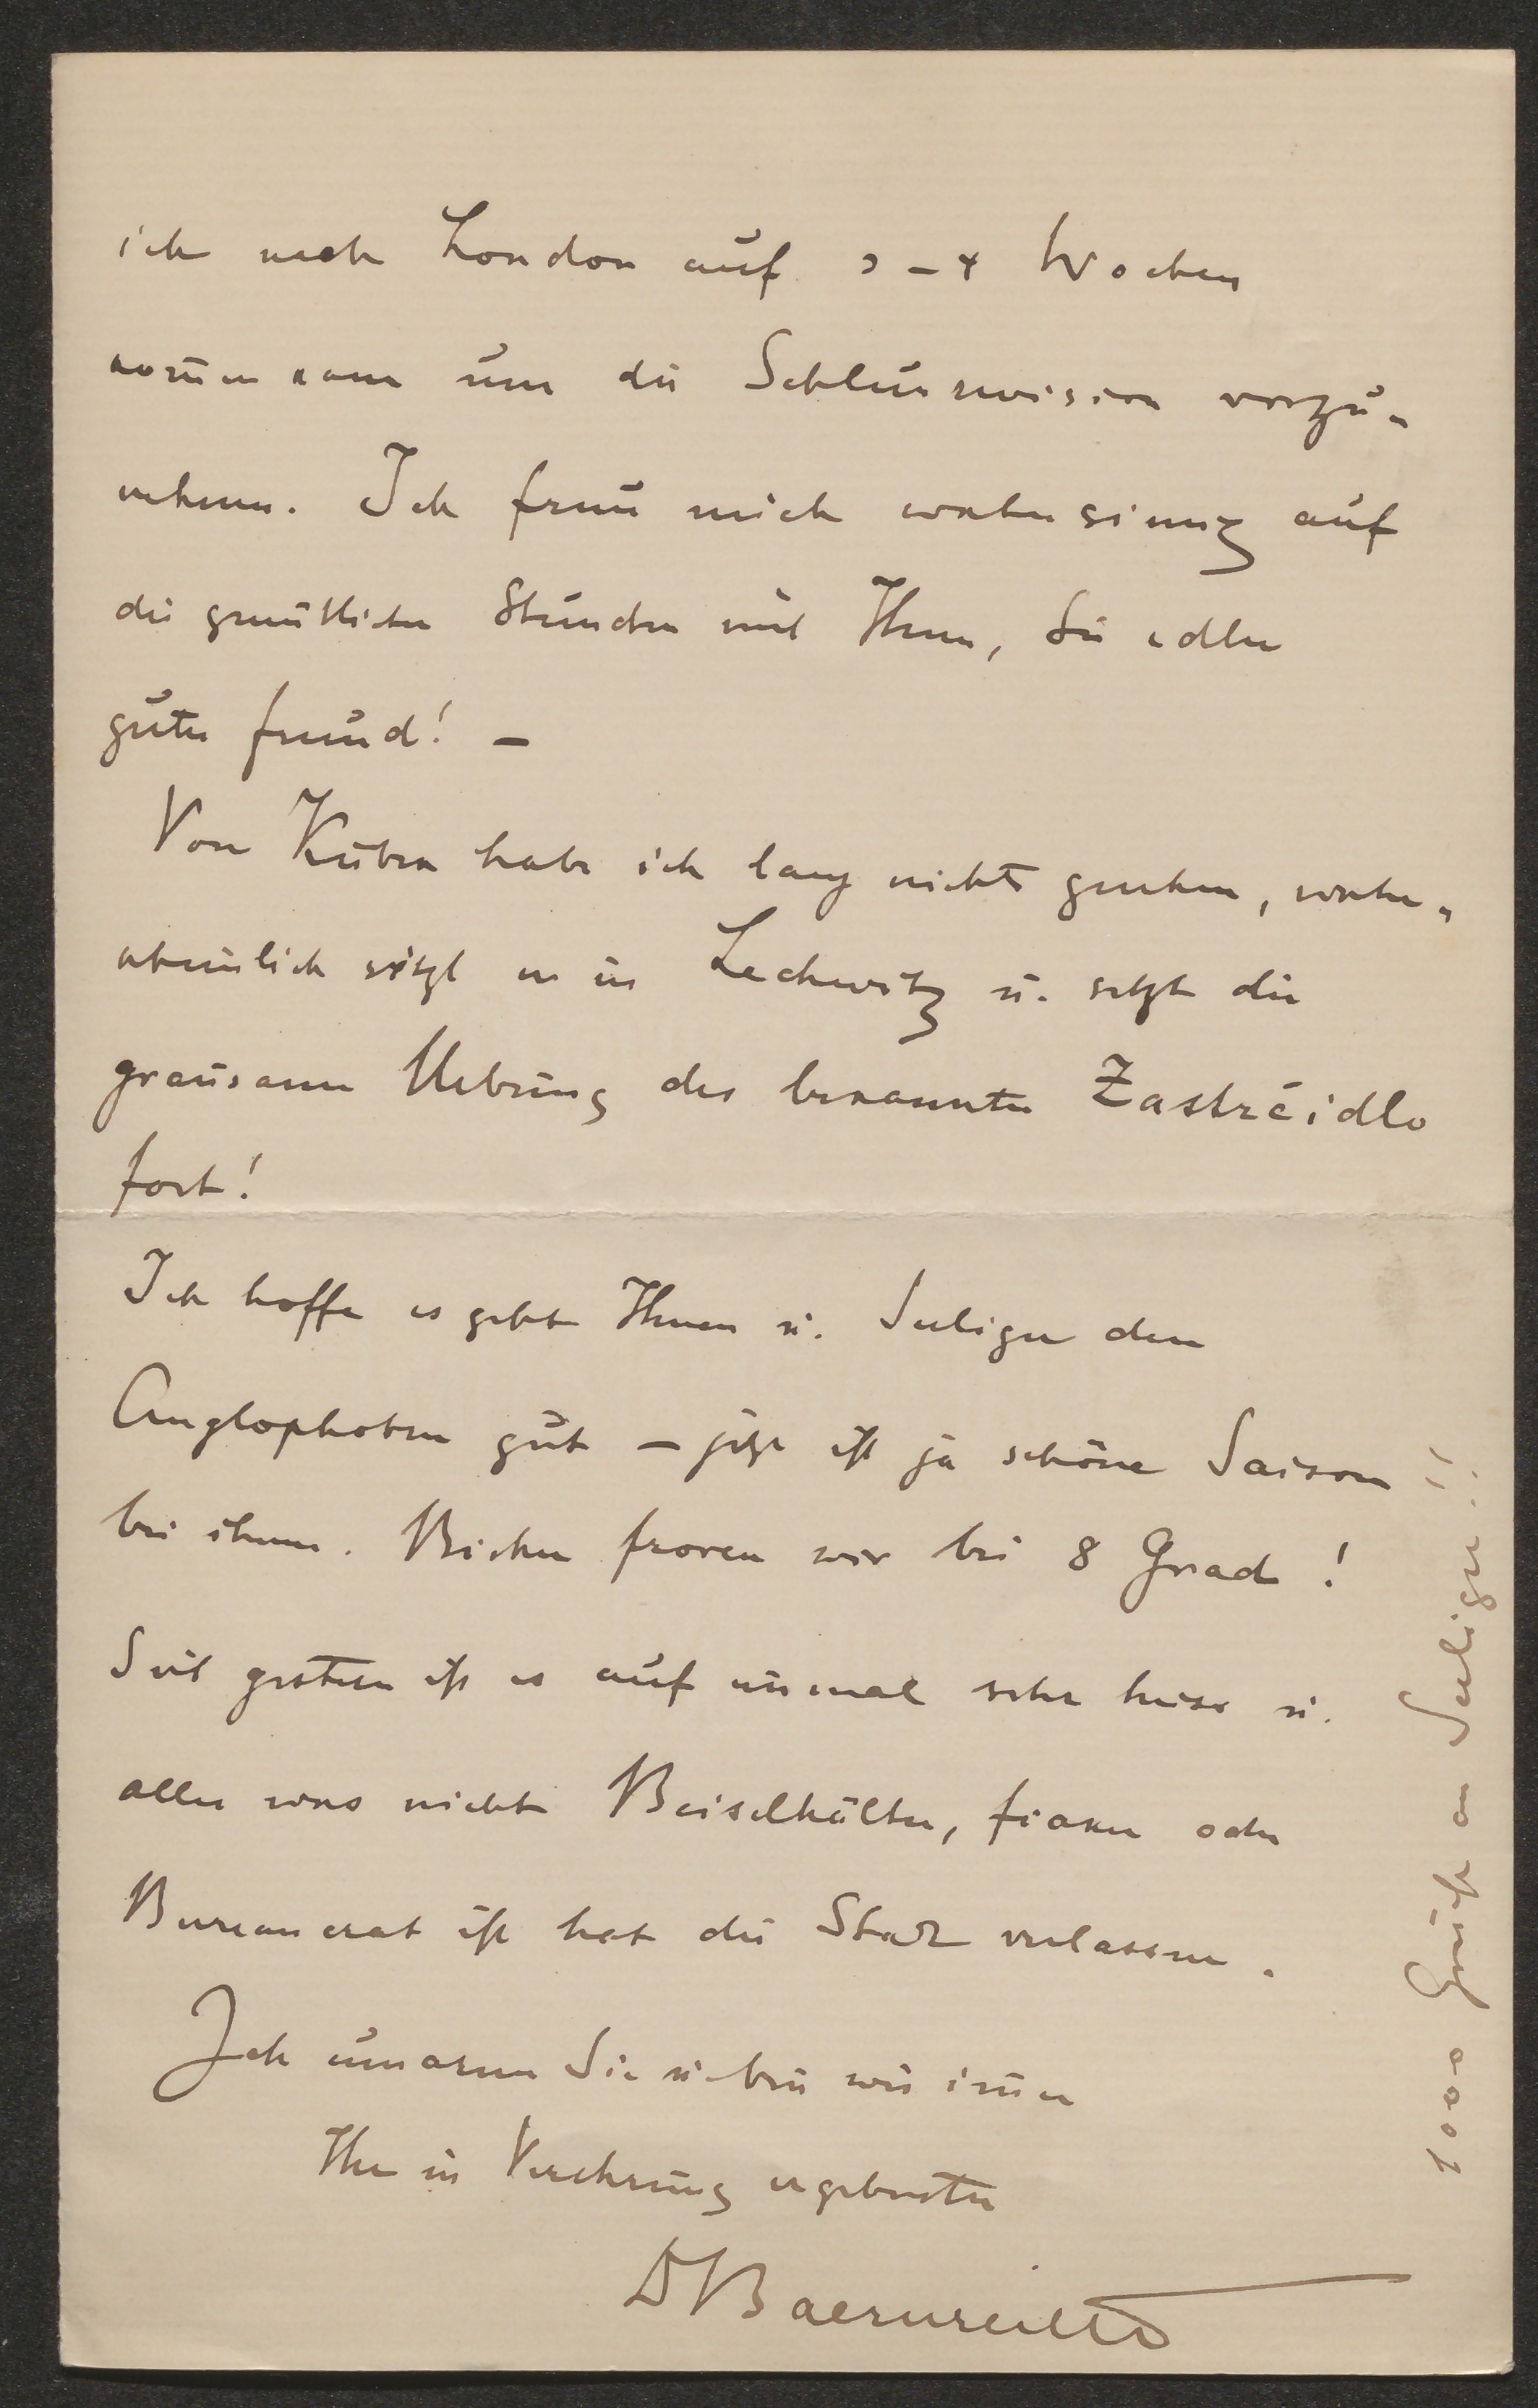 ich nach London auf 3–4 Wochen
kom̄en kann um die Schlussrevision vorzu-
nehmen. Ich freue mich wahnsinnig auf
die gemütlichen Stunden mit Ihnen, Sie edler
guter Freund! –
Von Kuben habe ich lang nichts gesehen, wahr-
scheinlich sitzt er in Lechwitz u. setzt die
grausame Uebung des bekannten Zastrčidlo
fort!
Ich hoffe es geht Ihnen u. Seeligen dem
Anglophoben gut – jetzt ist ja schöne Saison
bei ihnen. Bisher froren wir bei 8 Grad!
Seit gestern ist es auf einmal sehr heiss u.
alles was nicht Beiselhälter, Fiaker oder
Bureaucrat ist hat die Stadt verlassen.
Ich umarme Sie u bin wie im̄er
Ihr in Verehrung ergebenster
DBaernreither
1000 Grüße an Seeligen!!